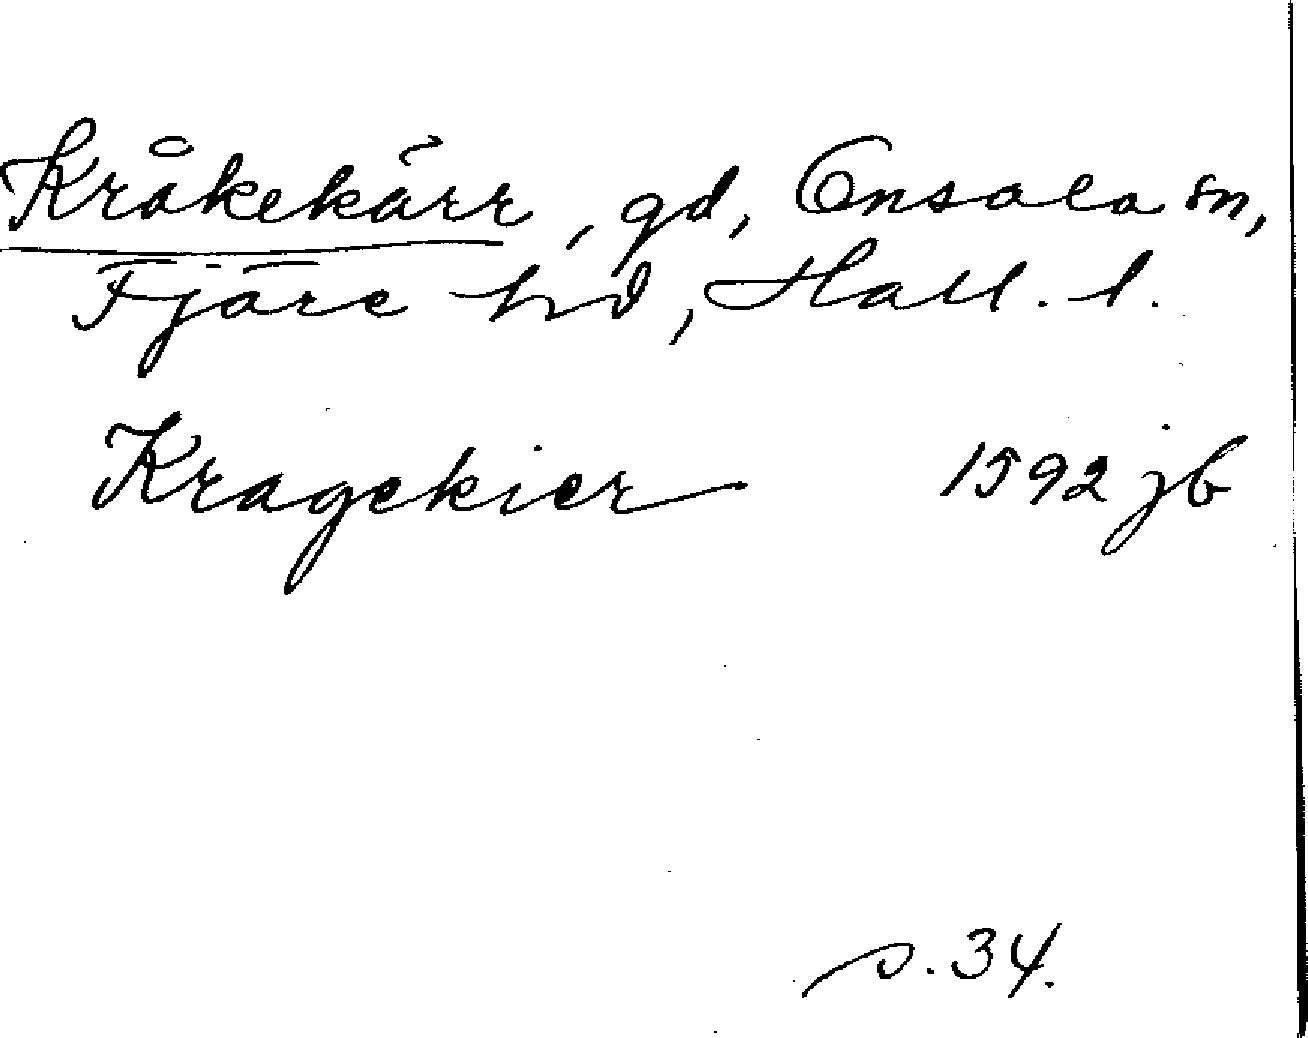 Kråkekärr, gd, Onsala sn,
Fjäre hd, Hall. l.
Kragekier 1592 jb
s. 34.